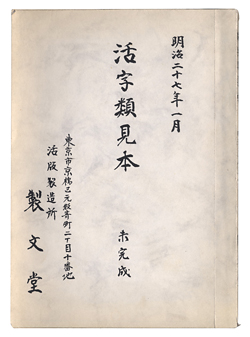 明治二十七年一月
活字類見本
未完成
東京市京橋区元数寄町二丁目十番地
活版製造所
製文堂